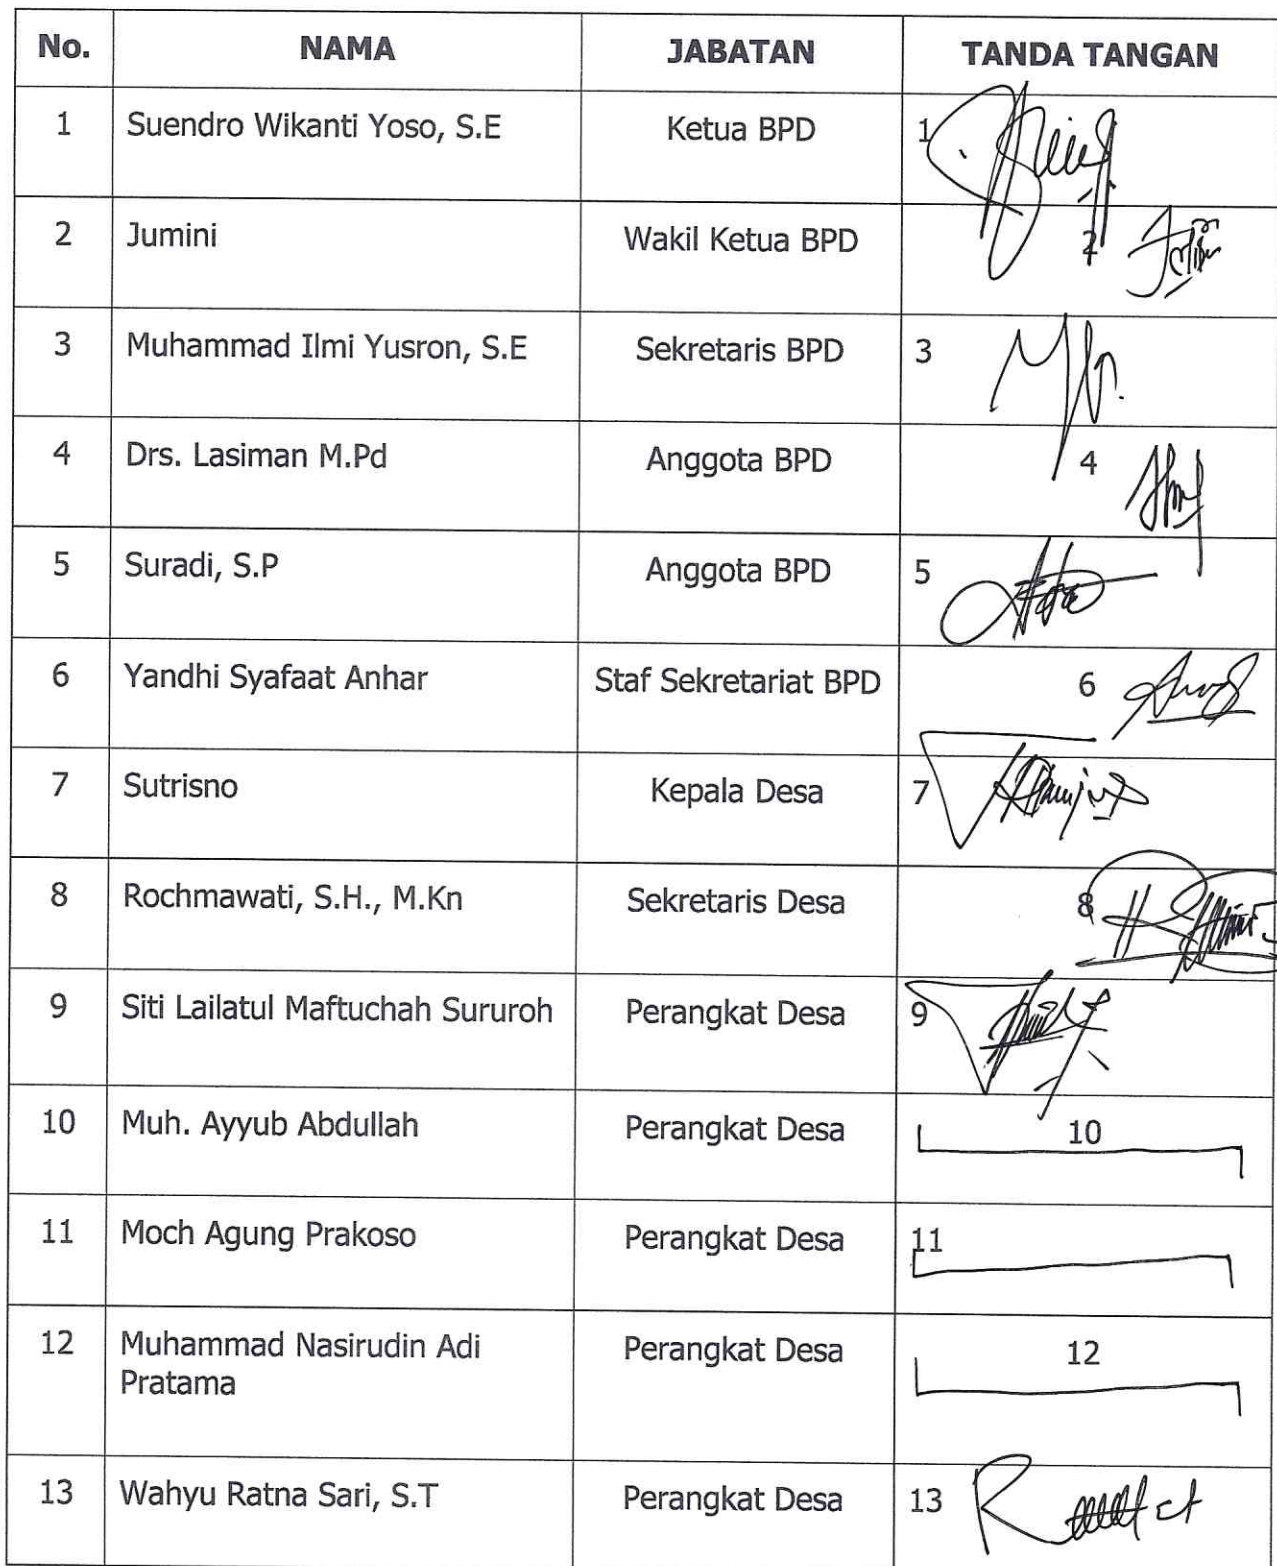 No. NAMA JABATAN TANDA TANGAN
1 Suendro Wikanti Yoso, S.E Ketua BPD 1
2 Jumini Wakil Ketua BPD 2
3 Muhammad Ilmi Yusron, S.E Sekretaris BPD 3
4 Drs. Lasiman M.Pd Anggota BPD 4
5 Suradi, S.P Anggota BPD 5
6 Yandhi Syafaat Anhar Staf Sekretariat BPD 6
7 Sutrisno Kepala Desa 7
8 Rochmawati, S.H., M.Kn Sekretaris Desa 8
9 Siti Lailatul Maftuchah Sururoh Perangkat Desa 9
10 Muh. Ayyub Abdullah Perangkat Desa 10
11 Moch Agung Prakoso Perangkat Desa 11
12 Muhammad Nasirudin Adi Perangkat Desa 12
Pratama
13 Wahyu Ratna Sari, S.T Perangkat Desa 13